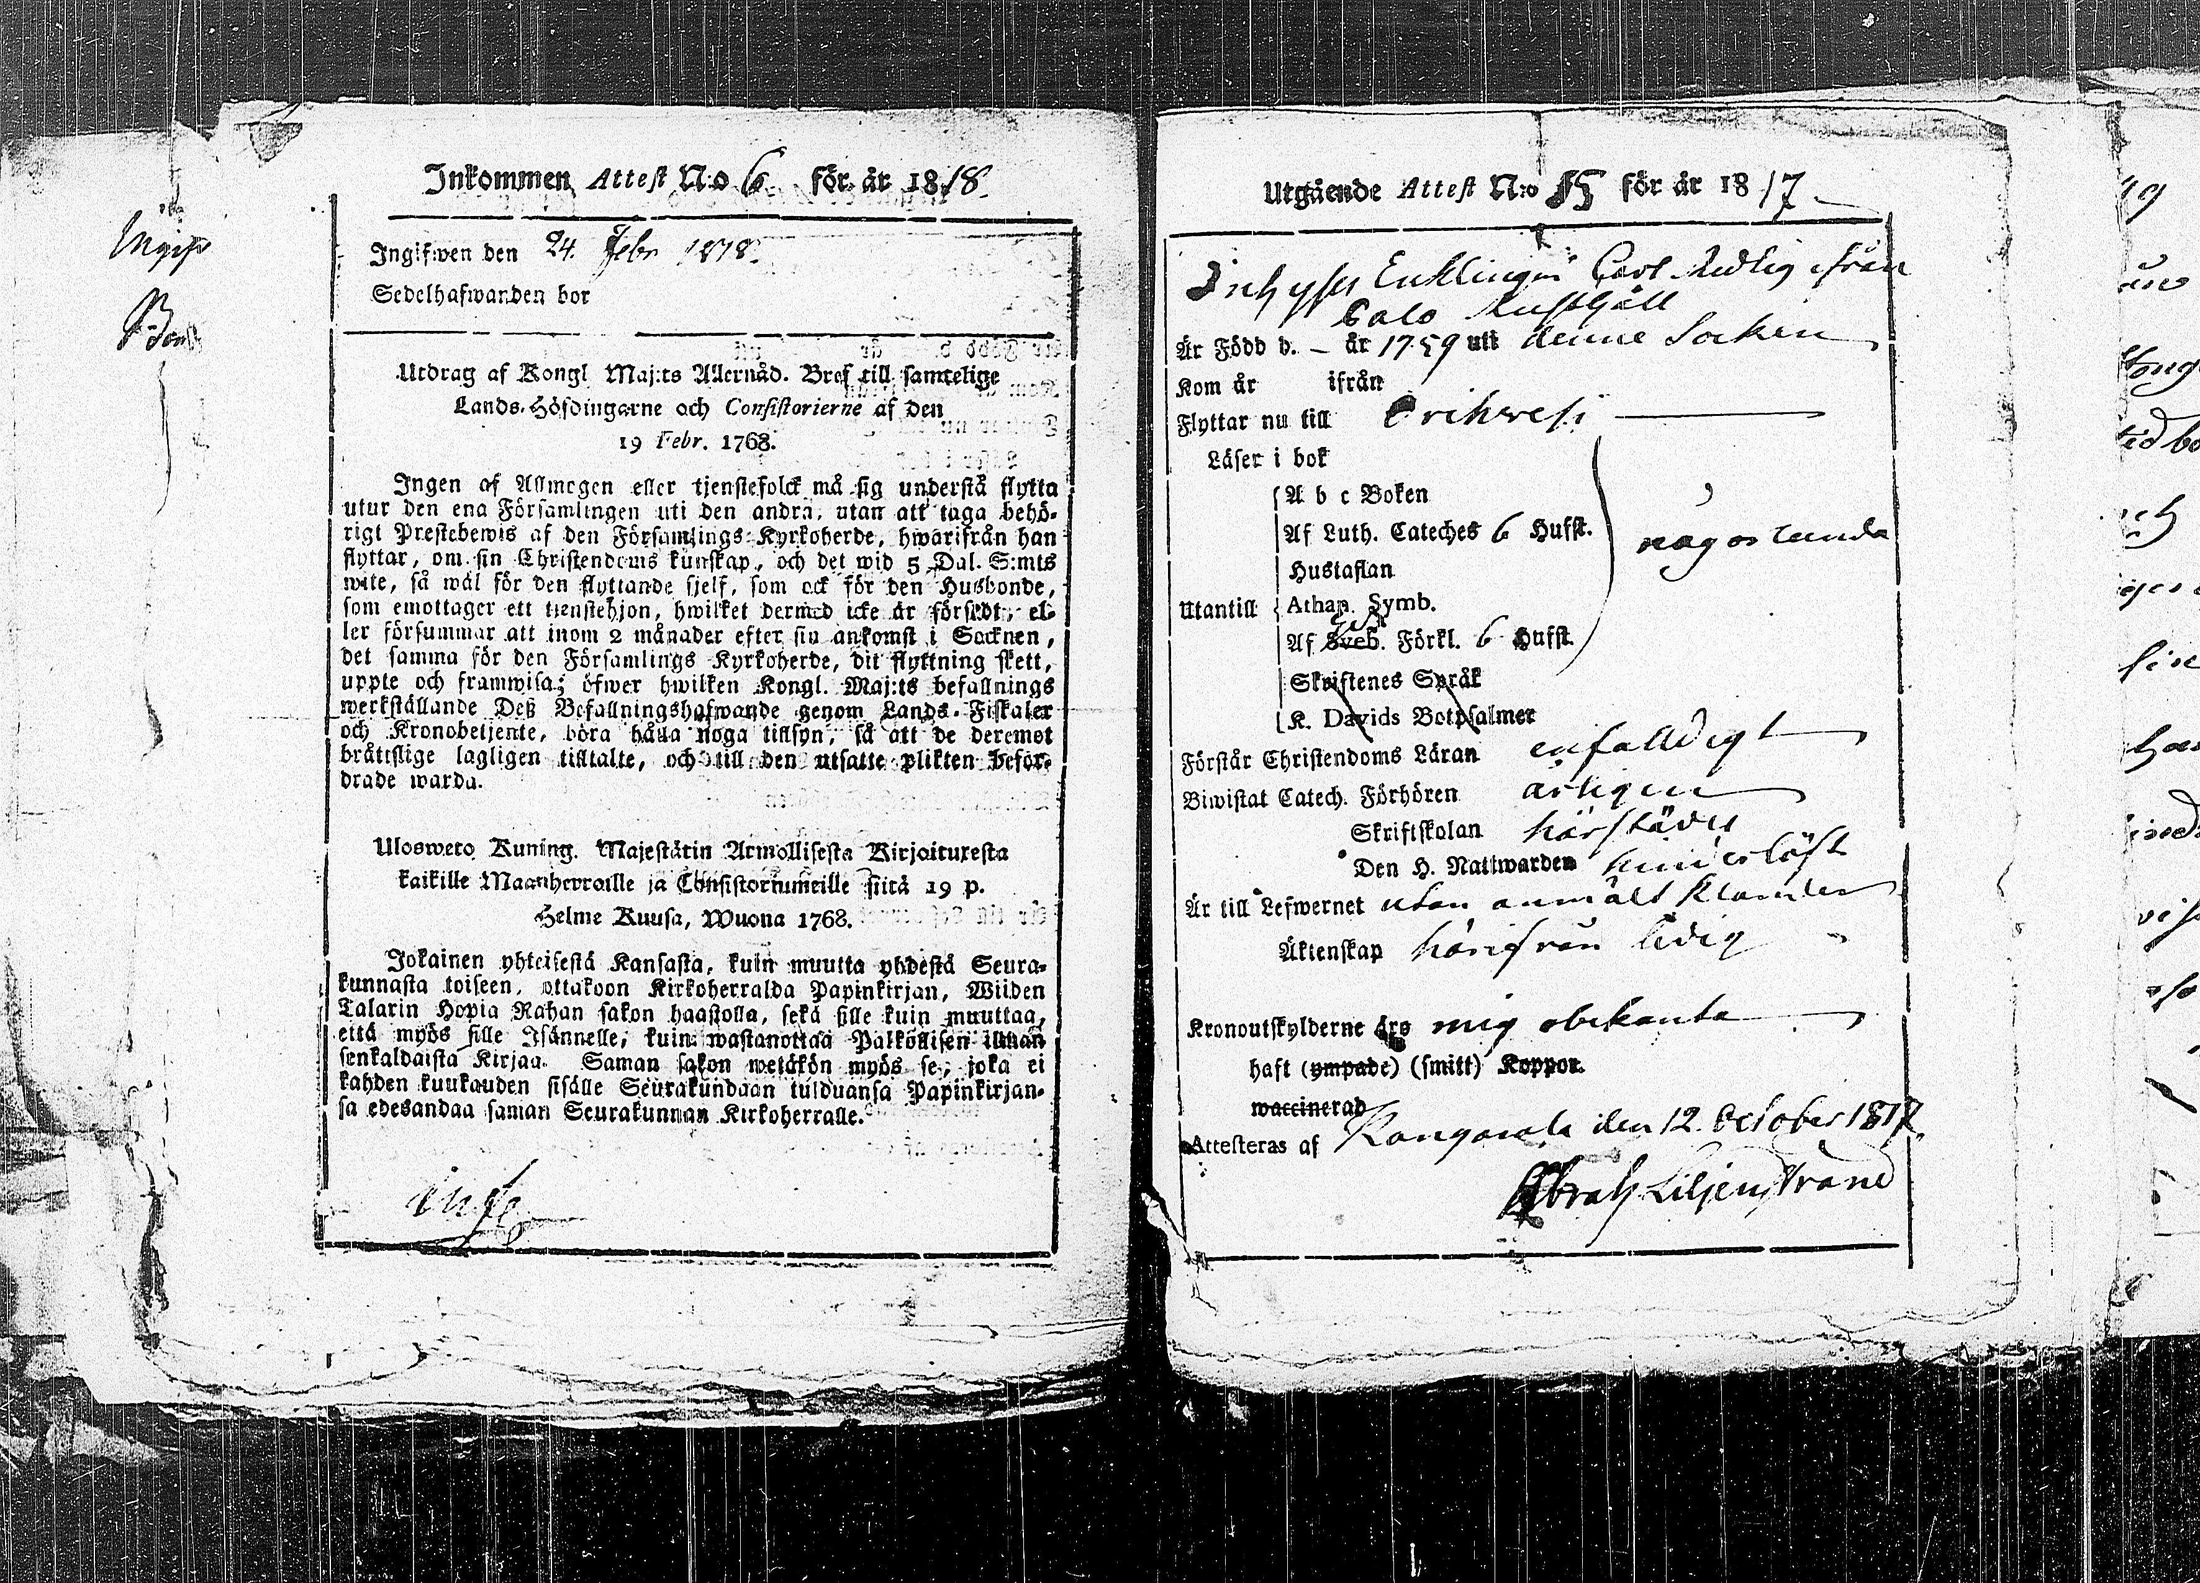 Inkommen Attest N:o 6 för år 1818.
Ingifwen den 24. Febr 1818.
Sedelhafwanden bor
Utdrag af Kongl. Maj:ts Allernåd. Bref till samtelige
Lands-Höfdingarne och Consistorierne af den
19 Febr. 1768.
Ingen af Allmogen eller tjenstefolck må sig understå flytta
utur den ena Församlingen uti den andra, utan att taga behö-
rigt Prestebewis af den Församlings-Kyrkoherde, hwarifrån han
flyttar, om sin Christendoms kunskap, och det wid 5 Dal. S:mts
wite, så wäl för den flyttande sjelf, som ock för den Husbonde,
som emottager ett tienstehjon, hwilket dermed icke är försedt, el-
ler försummar att inom 2 månader efter sin ankomst i Socknen,
det samma för den Församlings Kyrkoherde, dit flyttning skett,
uppte och framwisa; öfwer hwilken Kongl. Maj:ts befallnings
werkställande Deß Befallningshafwande genom Lands-Fiskaler
och Kronobetjente, böra hålla noga tillsyn, så att de deremot
bråttslige lagligen tilltalte, och till den utsatte plikten beför-
drade warda.
Ulosweto Kuning. Majestätin Armollisesta Kirjoituresta
kaikille Maanherroille ja Consistoriumeille siitä 19 p.
Helme Kuusa, Wuona 1768.
Jokainen yhteisestä Kansasta, kuin muutta yhdestä Seura-
kunnasta toiseen, ottakoon Kirkoherralda Papinkirjan, Wiiden
Talarin Hopia Rahan sakon haastolla, sekä sille kuin muuttaa,
että myös sille Isännelle, kuin wastanottaa Palkollisen ilman
senkaldaista Kirjaa. Saman sakon wetäkön myös se, joka ei
kahden kuukauden sisälle Seurakundaan tulduansa Papinkirjan-
sa edesandaa saman Seurakunnan Kirkoherralle.
Utgående Attest N:o 15 för år 1817
Inhyses Enklingen Carl ledig ifrån
Salo Rusthåll
Är Född d. – år 1759 uti denne Socken
Kom år ifrån
Flyttar nu till Orihvesi
Läser i bok
A b c Boken
Af Luth. Cateches 6 Hufst.
någorlunda
Hustaflan
Utantill
Athan. Symb.
Af Sveb. Förkl. 6 Hufst.
Skriftenes Språk
K. Davids Botpsalmer
Förstår Christendoms Läran enfalldigt
Biwistat Catech. Förhören årligen
Skriftskolan härstädes
Den H. Nattwarden hinderlöst
Är till Lefwernet utan anmält klander
Äktenskap härifrån ledig
Kronoutskylderne äro mig obekanta
haft (ympade) (smitt) Koppor.
waccinerad
Attesteras af Kangasala den 12. October 1817.
Abrah Liljenstrand